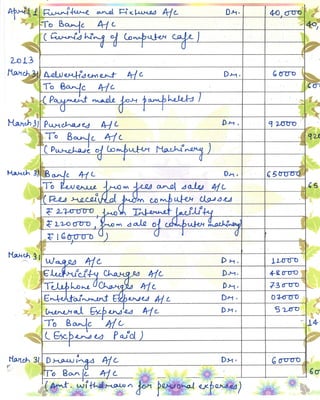 April 1 Furniture and Fixtures A/C Dr. 40,000
To Bank A/C 40,
(Furnishing of Computer Cafe)
2013
March 31 Advertisement A/C Dr. 6000
To Bank A/C 60
(Payment made for pamphelets)
March 31 Purchases A/C Dr. 92000
To Bank A/C 920
(Purchase of Computer Machinery)
March 31 Bank A/C Dr. 650000
To Revenue from fees and sales A/C 65
(Fees received from computer classes
₹ 270000, from Internet facility
₹ 220000, from sale of computer machinery
₹ 160000)
March 31 Wages A/C Dr. 12000
Electricity Charges A/C Dr. 48000
Telephone Charges A/C Dr. 73000
Entertainment Expenses A/C Dr. 07000
General Expenses A/C Dr. 5200
To Bank A/C 14
(Expenses Paid)
March 31 Drawings A/C Dr. 60000
To Bank A/C 60
(Amt. withdrawn for personal expenses)